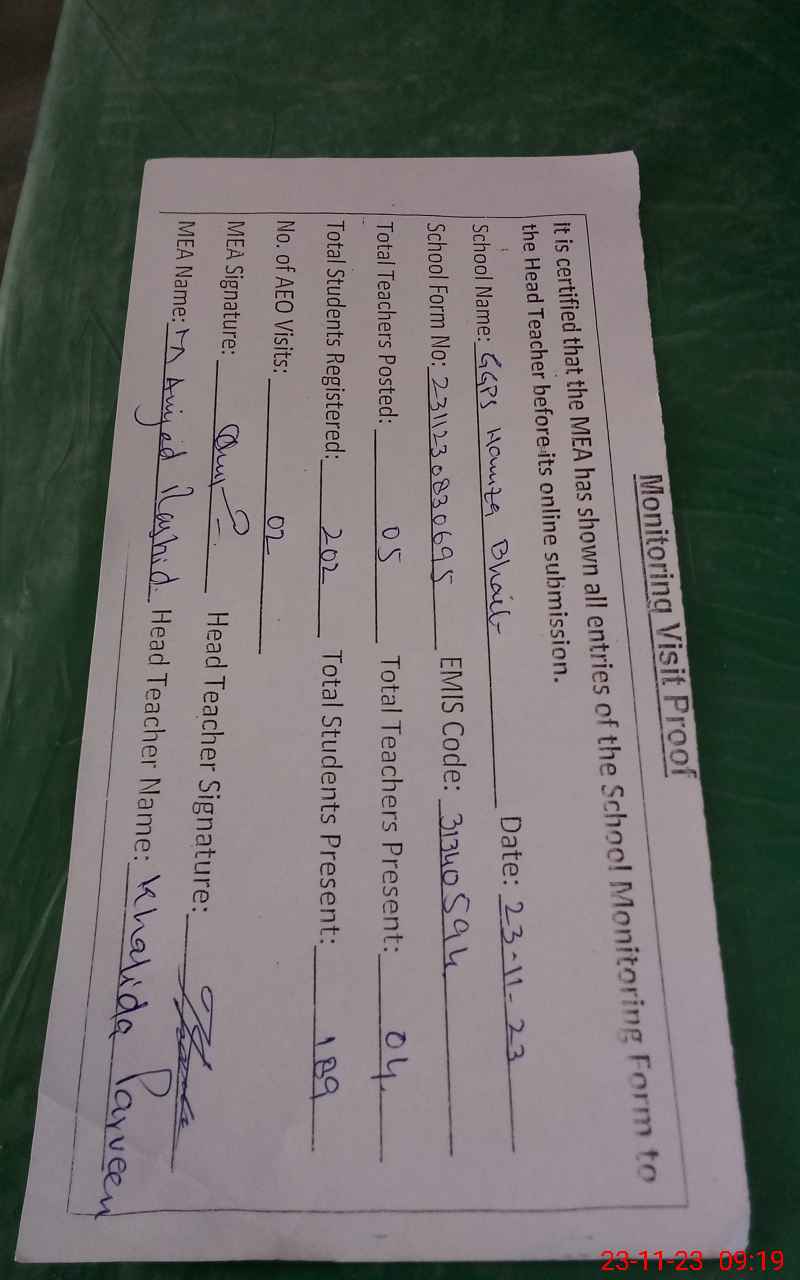 Monitoring Visit Proof
It is certified that the MEA has shown all entries of the School Monitoring Form to
the Head Teacher before its online submission.
School Name: GGPS Hamza Bhait Date: 23-11-23
School Form No: 2311230830695 EMIS Code: 31340594
Total Teachers Posted: 05 Total Teachers Present: 04
Total Students Registered: 202 Total Students Present: 189
No. of AEO Visits: 02
MEA Signature: Head Teacher Signature:
MEA Name: M Amjad Rashid Head Teacher Name: Khalida Parveen
23-11-23 09:19